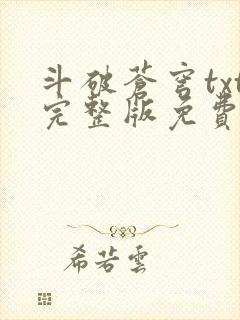 斗破蒼穹txt
完整版免費
希若雲